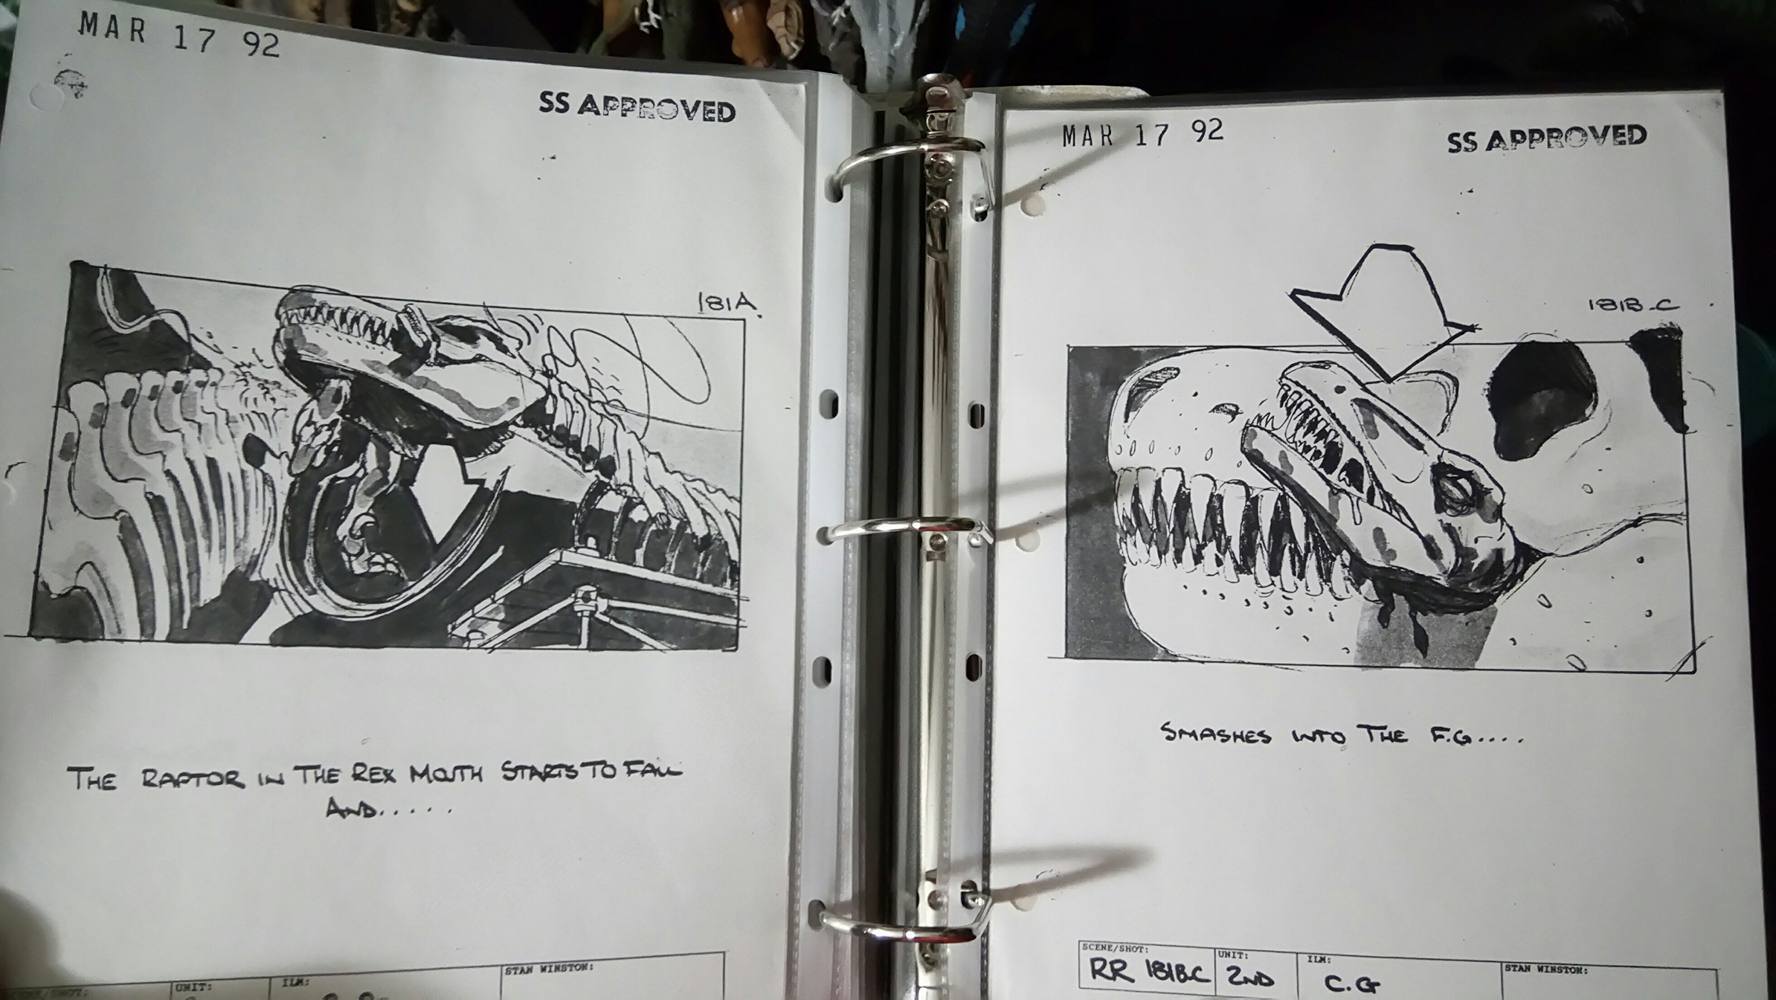 MAR 17 92
SS APPROVED
181A.
THE RAPTOR IN THE REX MOUTH STARTS TO FALL
AND.....
UNIT:
ILM:
STAN WINSTON:
MAR 17 92
SS APPROVED
181B-C
SMASHES INTO THE F.G....
SCENE/SHOT:
RR 181BC
UNIT:
2ND
ILM:
C.G
STAN WINSTON: